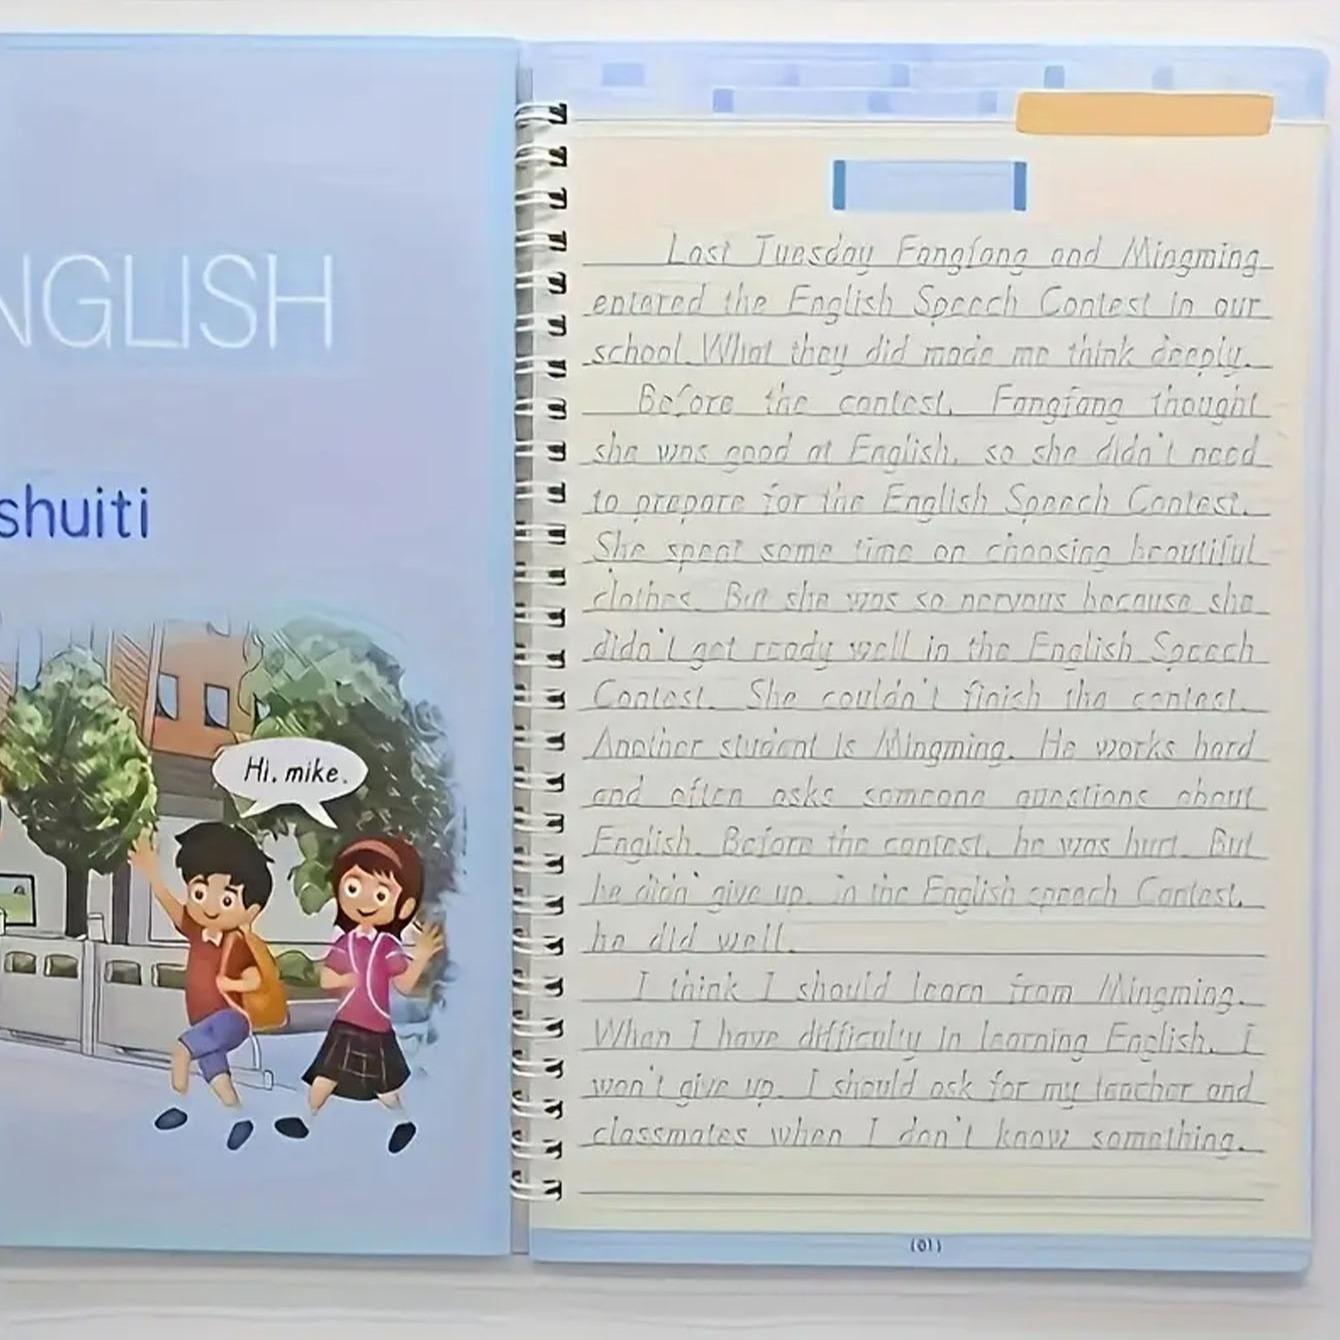 NGLISH
shuiti
Hi, mike.
Last Tuesday Fangfang and Mingming
entered the English Speech Contest in our
school. What they did made me think deeply.
Before the contest, Fangfang thought
she was good at English, so she didn't need
to prepare for the English Speech Contest.
She spent some time on choosing beautiful
clothes. But she was so nervous because she
didn't get ready well in the English Speech
Contest. She couldn't finish the contest.
Another student is Mingming. He works hard
and often asks someone questions about
English. Before the contest, he was hurt. But
he didn' give up. In the English speech Contest,
he did well.
I think I should learn from Mingming.
When I have difficulty in learning English, I
won't give up. I should ask for my teacher and
classmates when I don't know something.
(01)